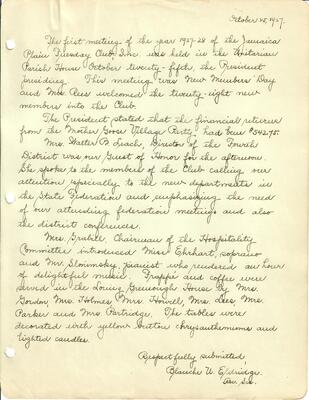 October 25, 1927.
The first meeting of the year 1927-28 of the Jamaica
Plain Tuesday Club Inc. was held in the Unitarian
Parish House October twenty-fifth, the President
presiding. This meeting was New Members' Day
and Mrs. Rees welcomed the twenty-eight new
members into the Club.
The President stated that the financial returns
from the Mother Goose Village Party had been $342.75.
Mrs. Walter B. Leach, Director of the Fourth
District was our Guest of Honor for the afternoon.
She spoke to the members of the Club calling our
attention especially to the new departments in
the State Federation and emphasizing the need
of our attending federation meetings and also
the district conferences.
Mrs. Grabill, Chairman of the Hospitality
Committee introduced Miss Ehrhart, soprano
and Mr. Slonimsky, pianist who rendered an hour
of delightful music. Frappé and coffee were
served in the Loring Greenough House by Mrs.
Gordon, Mrs. Holmes, Mrs. Howell, Mrs. Lees, Mrs.
Parker and Mrs. Partridge. The tables were
decorated with yellow button chrysanthemums and
lighted candles.
Respectfully submitted,
Blanche U. Eldridge.
Rec. Sec.